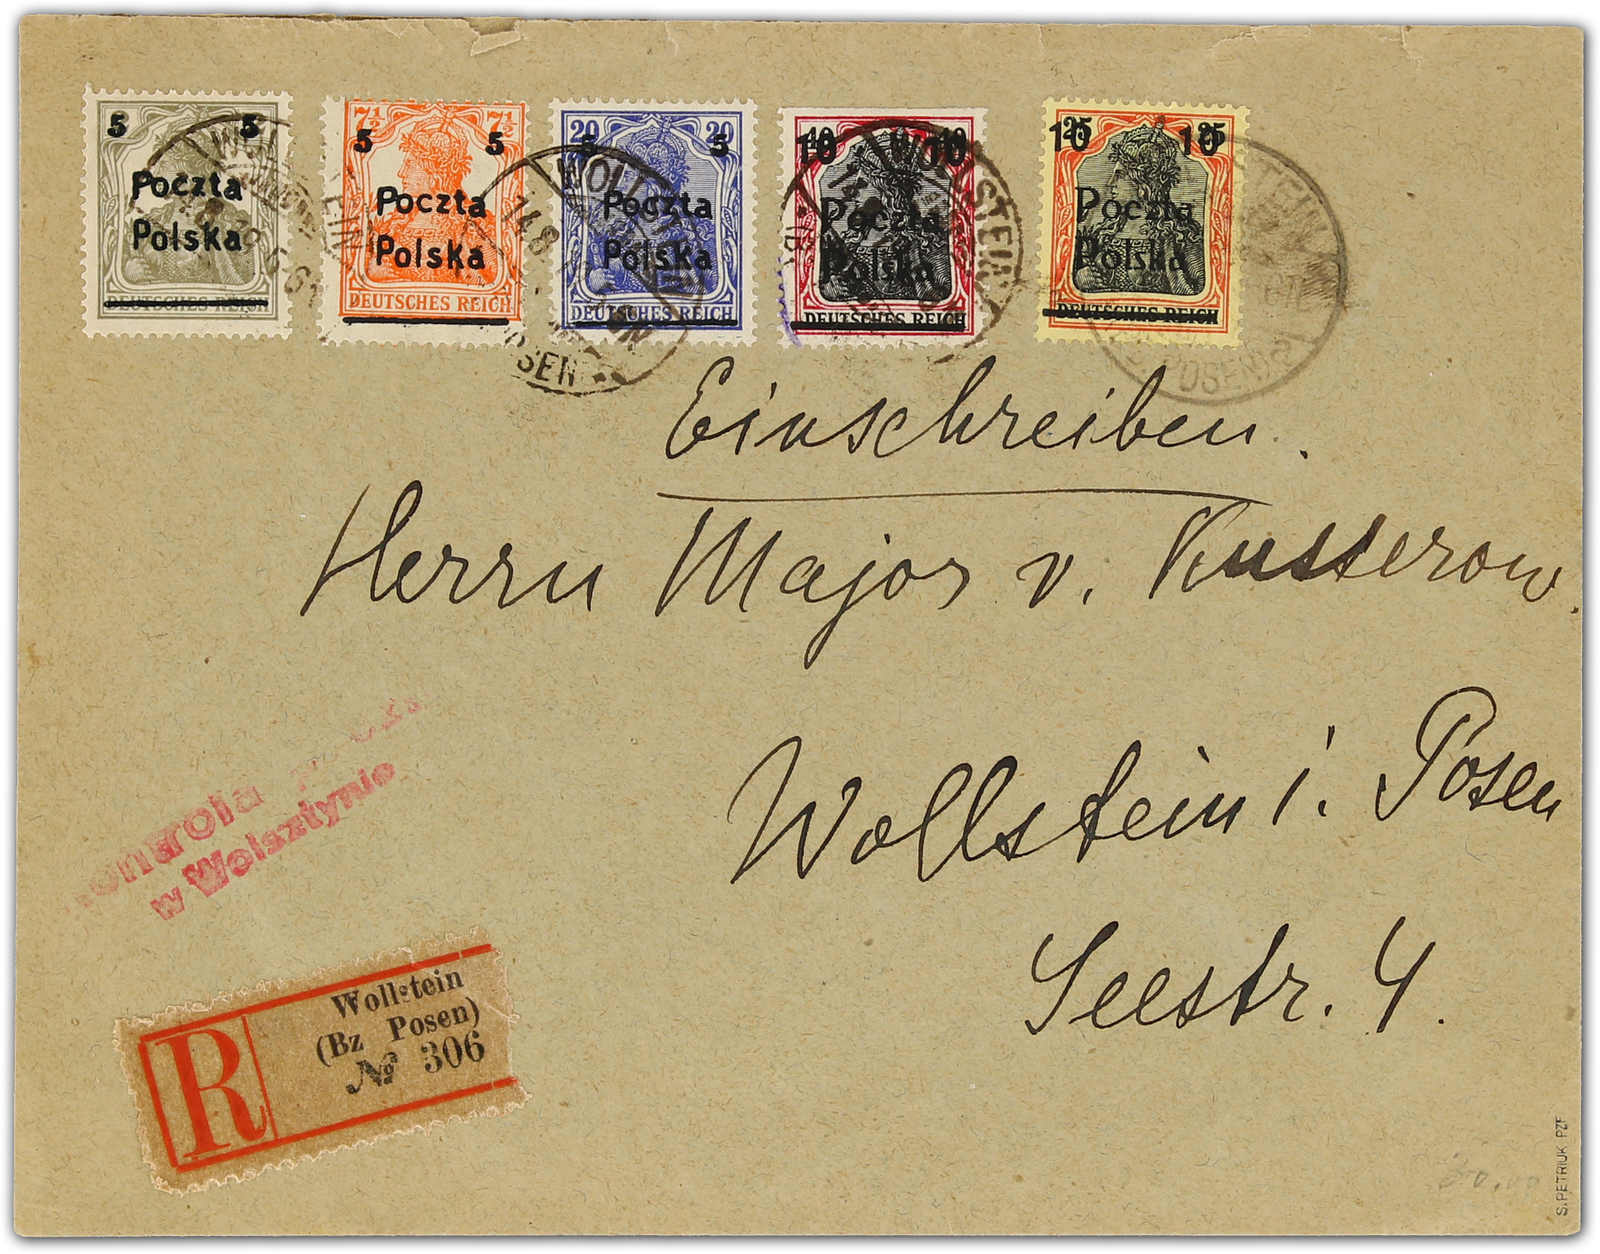 5 5
Poczta
Polska
DEUTSCHES REICH
7½ 7½
5 5
Poczta
Polska
DEUTSCHES REICH
20 20
5 5
Poczta
Polska
DEUTSCHES REICH
40 40
10 10
Poczta
Polska
DEUTSCHES REICH
25 25
10 10
Poczta
Polska
DEUTSCHES REICH
WOLLSTEIN
14.8
POSEN
Einschreiben.
Herrn Major v. Kusserow.
Wollstein i. Posen
Seestr. 4.
Kontrola
w Wolsztynie
R
Wollstein
(Bz Posen)
№ 306
S.PETRIUK PZF